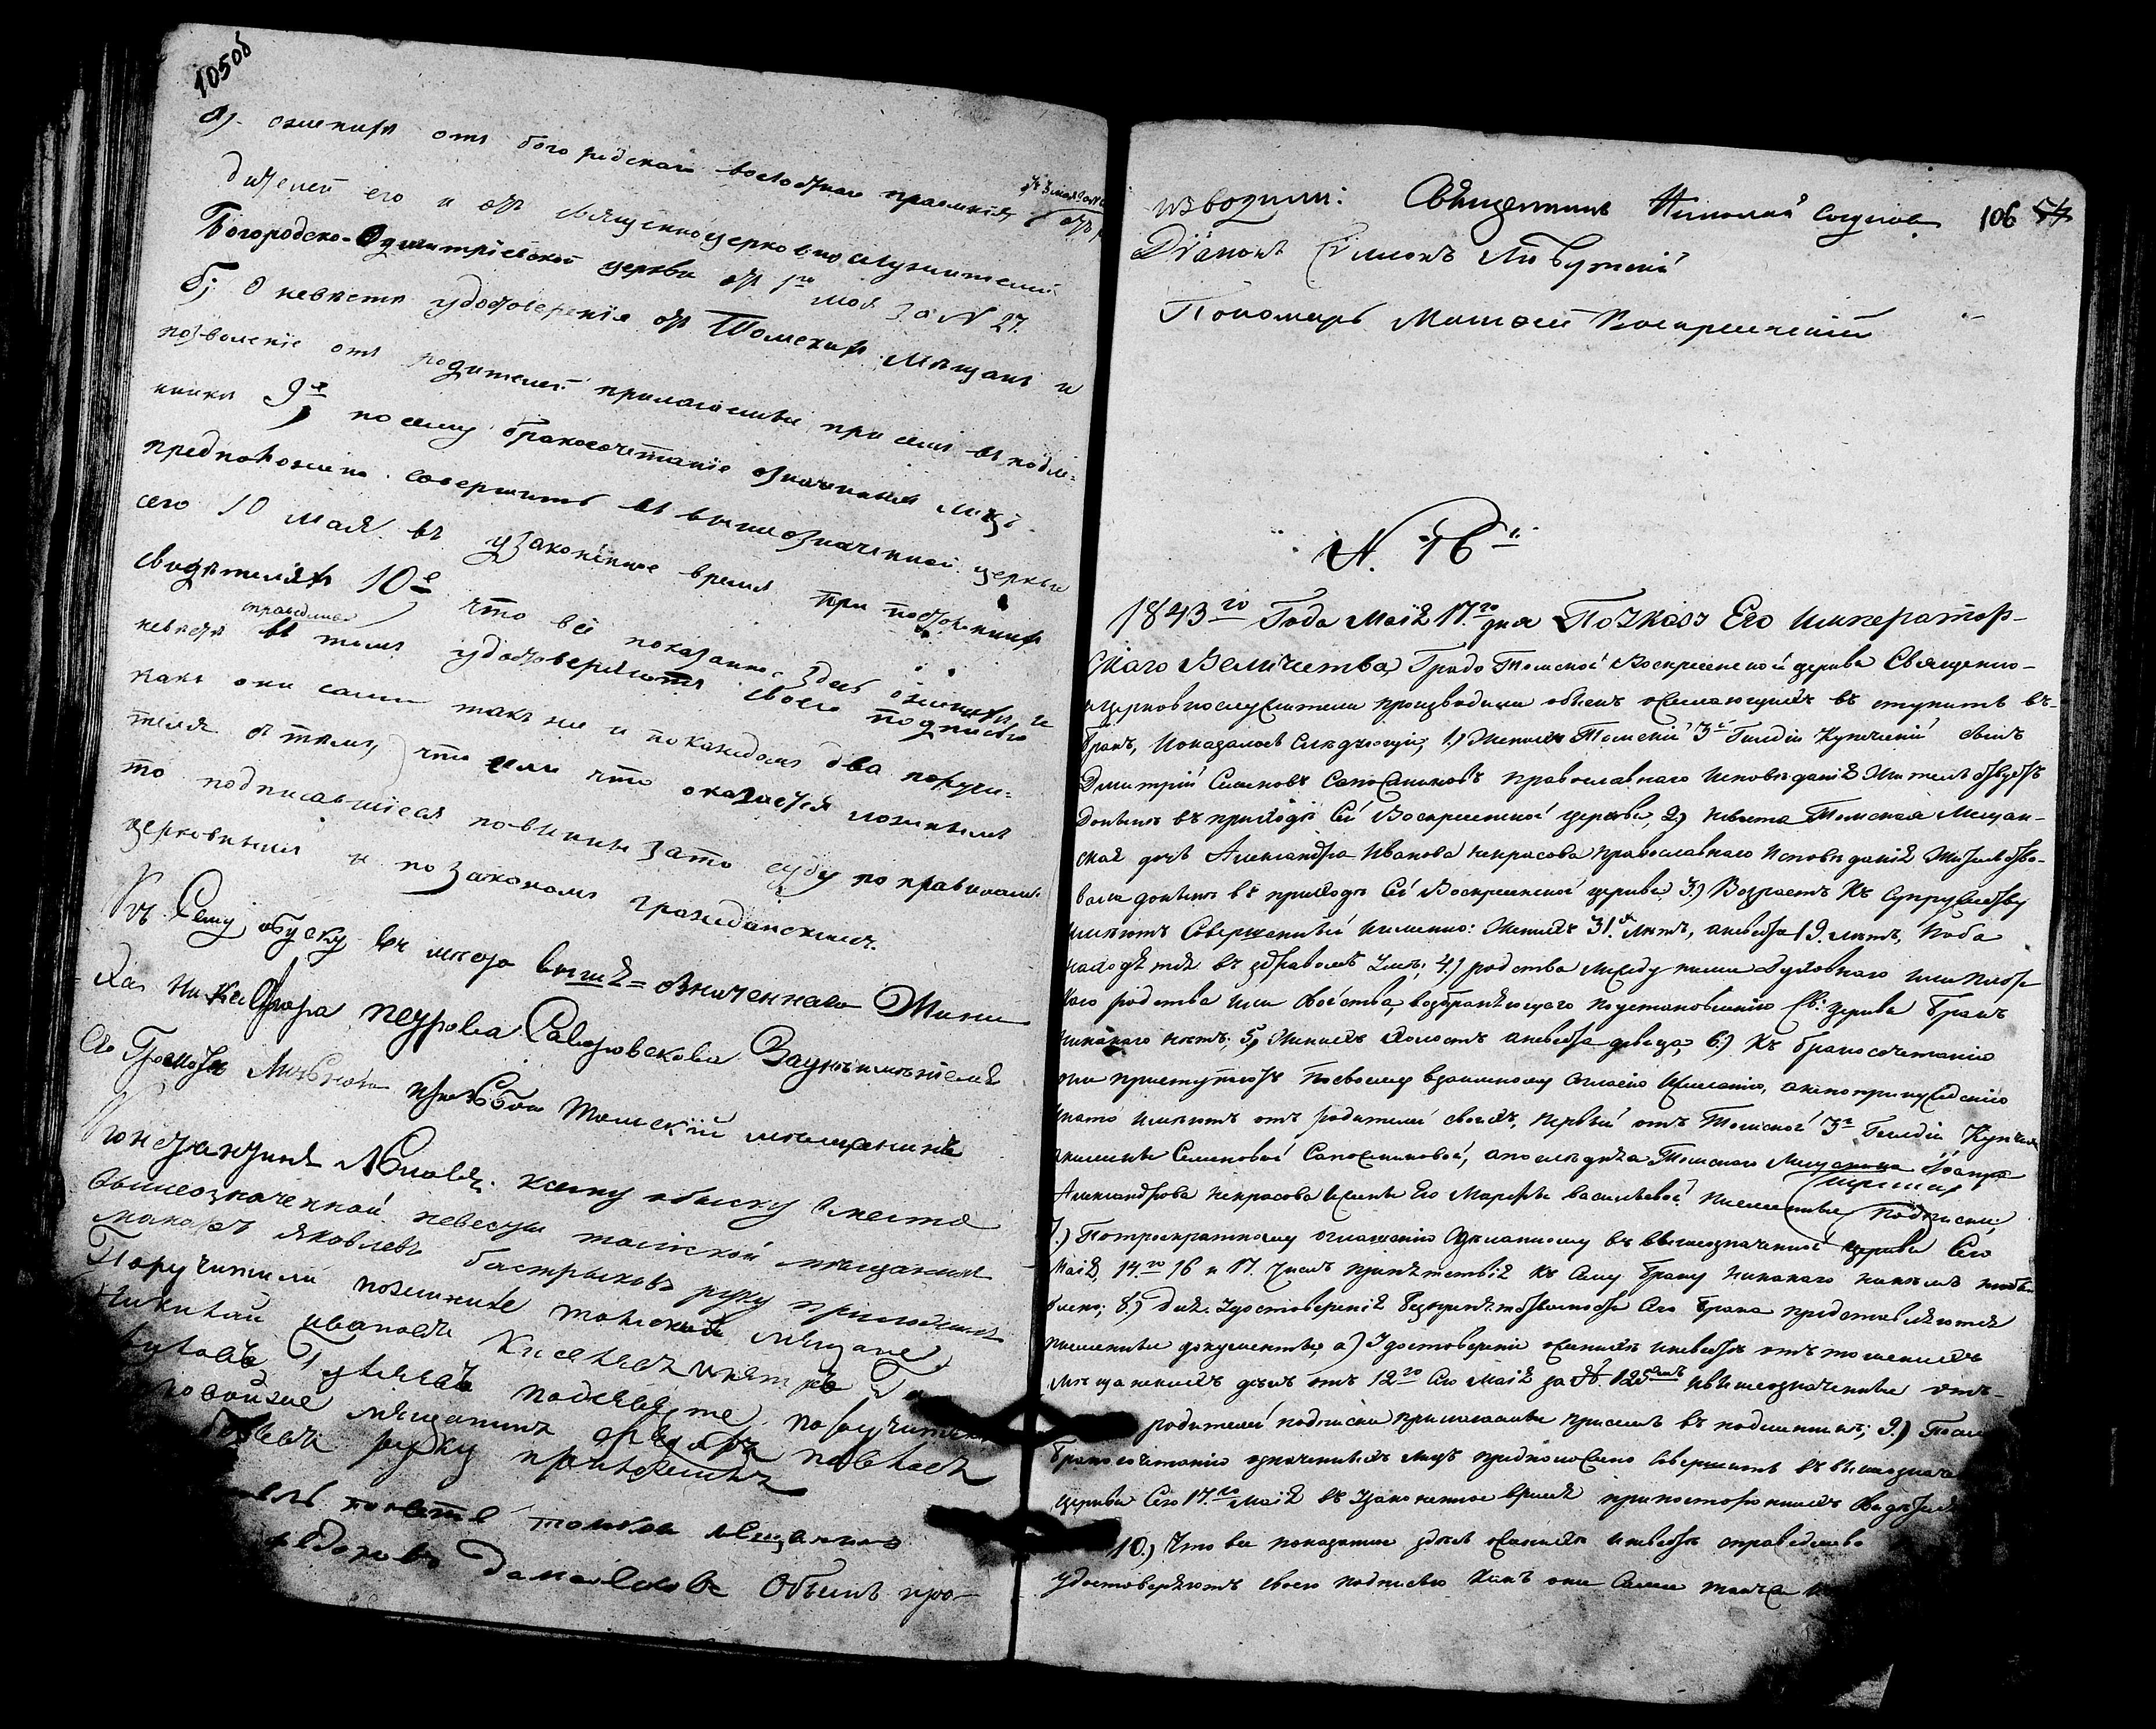 105об
а). о женихѣ отъ богородской волостнаго правленія
отъ 3 мая
дителей его и отъ священноцерковнослужителей
Богородско-Одигитріевской церкви отъ 1го мая за N 27.
б) О невѣстѣ удостовѣренія отъ Томскихъ мѣщанъ и
позволеніе отъ родителей прилагаемы при семъ въ подли-
никѣ 9е, по сему бракосочетаніе означенныхъ лицъ
предположено совершить въ вышеозначенной церкви
сего 10 мая въ узаконенное время при постороннихъ
свидѣтеляхъ 10е, что всё показанное здѣсь о женихѣ и
справедливо
невѣстѣ въ томъ удостовѣряютъ своею подписью
какъ они сами такъ же и по каждомъ два поручи-
теля въ томъ, что если что окажется ложнымъ
то подписавшіеся повинны за то суду по правиламъ
церковнымъ и по законамъ гражданскимъ.
Къ Сему обыску въ мѣсто выше=означеннаго Жени
=ха Никифора Петрова За неуменіемъ
Грамотѣ Личною прозбою Томскій мещанинъ
Константинъ Поповъ. к сему обыску вместо
вышеозначенной невесты томской мещанки
макаръ яковлевъ быстрыховъ руку приложилъ
Поручители по женихе томскіе мещане
николай ивановъ Киселевъ
мещанинъ павловъ
руку приложилъ
по невѣсте томской мещанинъ
федоровъ Обыскъ про-
изводили: Священникъ Николай
106 54
Діаконъ Симонъ
Пономарь Матвей Воскресенскій
N. 16й
1843го Года Маія 17го дня По Указу Его Император-
скаго Величества, Градо Томской Воскресенской церкви Священно-
и церковнослужители производили обыскъ о желающихъ въ ступить въ-
бракъ, и оказалось Слѣдующее; 1.) Женихъ Томскій 3й Гильдіи Купеческій сынъ
Дмитрій Симоновъ Сапожниковъ православнаго Исповѣданія Жительствуетъ
донынѣ въ приходѣ Сей Воскресенской церкви, 2.) Невѣста Томская Мещан-
ская дочь Александра Иванова Некрасова православнаго Исповѣданія Жительство-
вала донынѣ въ приходѣ Сей Воскресенской церкви 3.) Возрастъ Къ Супружеству
имѣютъ Совершенный именно: Женихъ 31. лѣтъ, а невѣста 19. лѣтъ, и оба
находятся въ здравомъ Умѣ; 4.) родства между ними духовнаго или плотс-
каго родства или свойства, возбраняющаго по установленію Св: церкви бракъ
никакого нѣтъ; 5.) Женихъ холостъ а невѣста девица, 6.) Къ бракосочетанію
они приступаютъ По своему взаимному Согласію и Желанію, а не по принужденію
и на то имѣютъ отъ родителей своихъ, первый отъ Томской 3й Гильдіи Купчихи
Семеновой Сапожниковой, а послѣдняя Томскаго Мещанина Ивана
Александрова Некрасова и Жены Его Марфы васильевой письменные Подписки;
7.) По троекратному оглашенію Учиненному въ вышеозначенной церкви Сего
Маія, 14.го 16 и 17. Числъ препятствія Къ Сему браку никакого никѣмъ необъяв-
лено; 8.) Для Удостоверенія безпрепятственности Сего брака представляются
письменные документы, а) Удостовереніе о женихѣ и невѣсте отъ томскихъ
мѣщанскихъ дѣлъ отъ 12го Сего Маія за N. 125мъ и вышеозначенные отъ-
родителей подписки прилагаемы при семъ въ подлинникѣ; 9.) По сему
бракосочетаніе означенныхъ лицъ предположено Совершить въ вышеозначен
церкви Сего 17го Маія въ Узаконенное время при постороннихъ Свидѣтеляхъ
10.) Что все показанное здѣсь о женихѣ и невѣсте справедливо
удостоверяютъ своею подписью Какъ они Сами